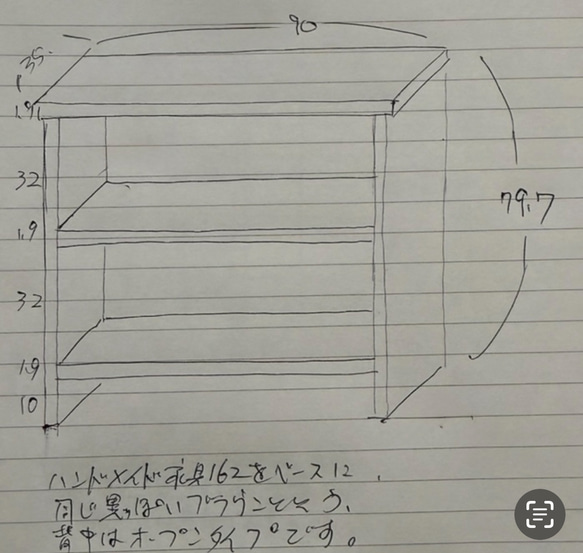 90
35
1.9
32
1.9
79.7
32
1.9
10
ハンドメイド家具162をベースに、
同じ黒っぽいブラウンとそう、
背中はオープンタイプです。